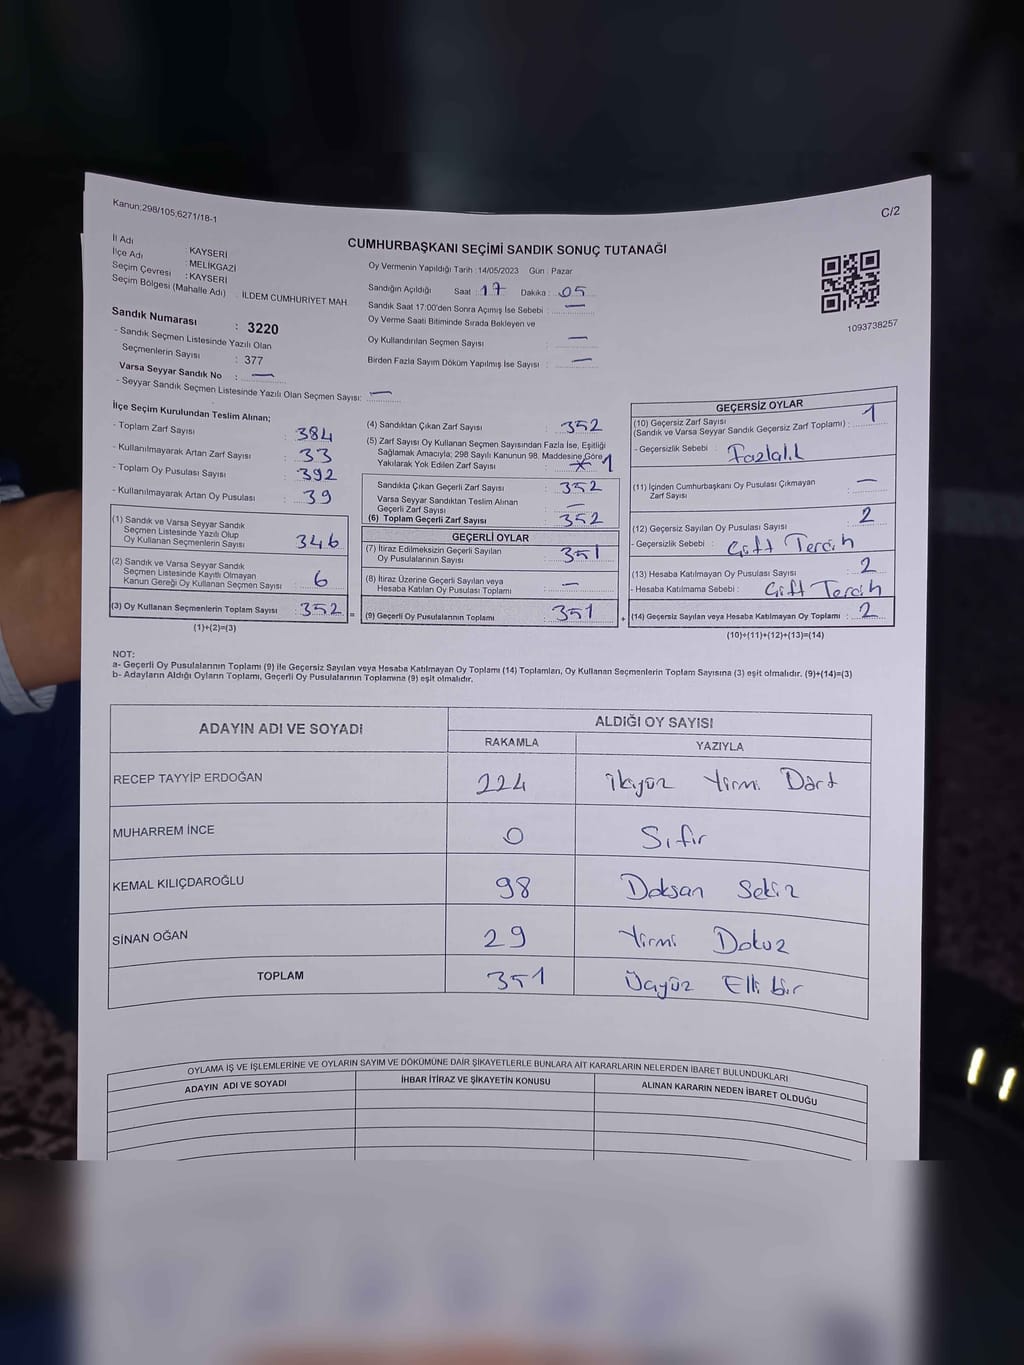 Kanun:298/105;6271/18-1
C/2
CUMHURBAŞKANI SEÇİMİ SANDIK SONUÇ TUTANAĞI
İl Adı : KAYSERİ
İlçe Adı : MELİKGAZİ
Seçim Çevresi : KAYSERİ
Seçim Bölgesi (Mahalle Adı) : İLDEM CUMHURİYET MAH.
Sandık Numarası : 3220
- Sandık Seçmen Listesinde Yazılı Olan
Seçmenlerin Sayısı : 377
Varsa Seyyar Sandık No : —
- Seyyar Sandık Seçmen Listesinde Yazılı Olan Seçmen Sayısı: —
Oy Vermenin Yapıldığı Tarih : 14/05/2023 Gün : Pazar
Sandığın Açıldığı Saat : 17 Dakika : 05
Sandık Saat 17:00'den Sonra Açımış İse Sebebi : —
Oy Verme Saati Bitiminde Sırada Bekleyen ve
Oy Kullandırılan Seçmen Sayısı : —
Birden Fazla Sayım Döküm Yapılmış İse Sayısı : —
1093738257
İlçe Seçim Kurulundan Teslim Alınan;
- Toplam Zarf Sayısı : 384
- Kullanılmayarak Artan Zarf Sayısı : 33
- Toplam Oy Pusulası Sayısı : 392
- Kullanılmayarak Artan Oy Pusulası : 39
(1) Sandık ve Varsa Seyyar Sandık
Seçmen Listesinde Yazılı Olup
Oy Kullanan Seçmenlerin Sayısı : 346
(2) Sandık ve Varsa Seyyar Sandık
Seçmen Listesinde Kayıtlı Olmayan
Kanun Gereği Oy Kullanan Seçmen Sayısı : 6
(3) Oy Kullanan Seçmenlerin Toplam Sayısı : 352 =
(1)+(2)=(3)
(4) Sandıktan Çıkan Zarf Sayısı : 352
(5) Zarf Sayısı Oy Kullanan Seçmen Sayısından Fazla İse, Eşitliği
Sağlamak Amacıyla; 298 Sayılı Kanunun 98. Maddesine Göre
Yakılarak Yok Edilen Zarf Sayısı : 1
Sandıkta Çıkan Geçerli Zarf Sayısı : 352
Varsa Seyyar Sandıktan Teslim Alınan
Geçerli Zarf Sayısı : —
(6) Toplam Geçerli Zarf Sayısı : 352
GEÇERLİ OYLAR
(7) İtiraz Edilmeksizin Geçerli Sayılan
Oy Pusulalarının Sayısı : 351
(8) İtiraz Üzerine Geçerli Sayılan veya
Hesaba Katılan Oy Pusulası Toplamı : —
(9) Geçerli Oy Pusulalarının Toplamı : 351 +
GEÇERSİZ OYLAR
(10) Geçersiz Zarf Sayısı
(Sandık ve Varsa Seyyar Sandık Geçersiz Zarf Toplamı) : 1
- Geçersizlik Sebebi : Fazlalık
(11) İçinden Cumhurbaşkanı Oy Pusulası Çıkmayan
Zarf Sayısı : —
(12) Geçersiz Sayılan Oy Pusulası Sayısı : 2
- Geçersizlik Sebebi : Çift Tercih
(13) Hesaba Katılmayan Oy Pusulası Sayısı : 2
- Hesaba Katılmama Sebebi : Çift Tercih
(14) Geçersiz Sayılan veya Hesaba Katılmayan Oy Toplamı : 2
(10)+(11)+(12)+(13)=(14)
NOT:
a- Geçerli Oy Pusulalarının Toplamı (9) ile Geçersiz Sayılan veya Hesaba Katılmayan Oy Toplamı (14) Toplamları, Oy Kullanan Seçmenlerin Toplam Sayısına (3) eşit olmalıdır. (9)+(14)=(3)
b- Adayların Aldığı Oyların Toplamı, Geçerli Oy Pusulalarının Toplamına (9) eşit olmalıdır.
ADAYIN ADI VE SOYADI ALDIĞI OY SAYISI
RAKAMLA YAZIYLA
RECEP TAYYİP ERDOĞAN 224 İkiyüz Yirmi Dört
MUHARREM İNCE 0 Sıfır
KEMAL KILIÇDAROĞLU 98 Doksan Sekiz
SİNAN OĞAN 29 Yirmi Dokuz
TOPLAM 351 Üçyüz Elli bir
OYLAMA İŞ VE İŞLEMLERİNE VE OYLARIN SAYIM VE DÖKÜMÜNE DAİR ŞİKAYETLERLE BUNLARA AİT KARARLARIN NELERDEN İBARET BULUNDUKLARI
ADAYIN ADI VE SOYADI İHBAR İTİRAZ VE ŞİKAYETİN KONUSU ALINAN KARARIN NEDEN İBARET OLDUĞU